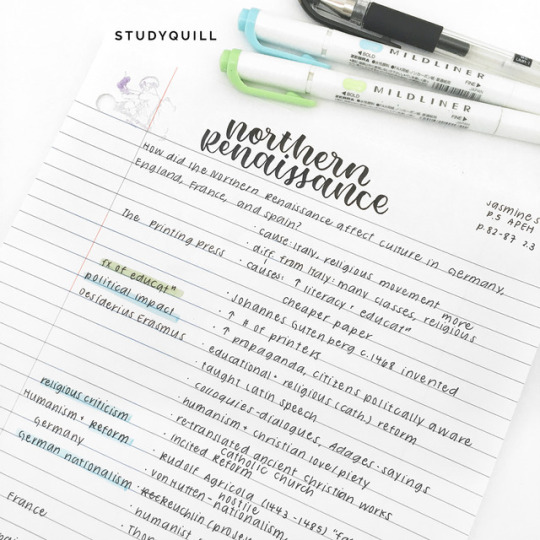 STUDYQUILL
MILDLINER
BOLD FINE
MILDLINER
BOLD FINE
Northern
Renaissance
Jasmine S
P.5 APEH
p.82-87 2.3
How did the Northern Renaissance affect culture in Germany,
England, France, and Spain?
· cause: Italy, religious movement
· diff from Italy: many classes, more religious
The Printing Press · causes: ↑ literacy + educatⁿ
cheaper paper
· Johannes Gutenberg c.1468 invented
fx of educatⁿ · ↑ # of printers
political impact · ↑ propaganda, citizens politically aware
Desiderius Erasmus · educational + religious (cath.) reform
· taught Latin speech
· colloquies-dialogues, Adages-sayings
· humanism + christian love/piety
religious criticism · retranslated ancient christian works
Humanism + Reform · incited Reform catholic church
Germany · Rudolf Agricola (1443-1485)
German nationalism · von Hutten - hostile nationalism
· Reuchlin
France · humanist